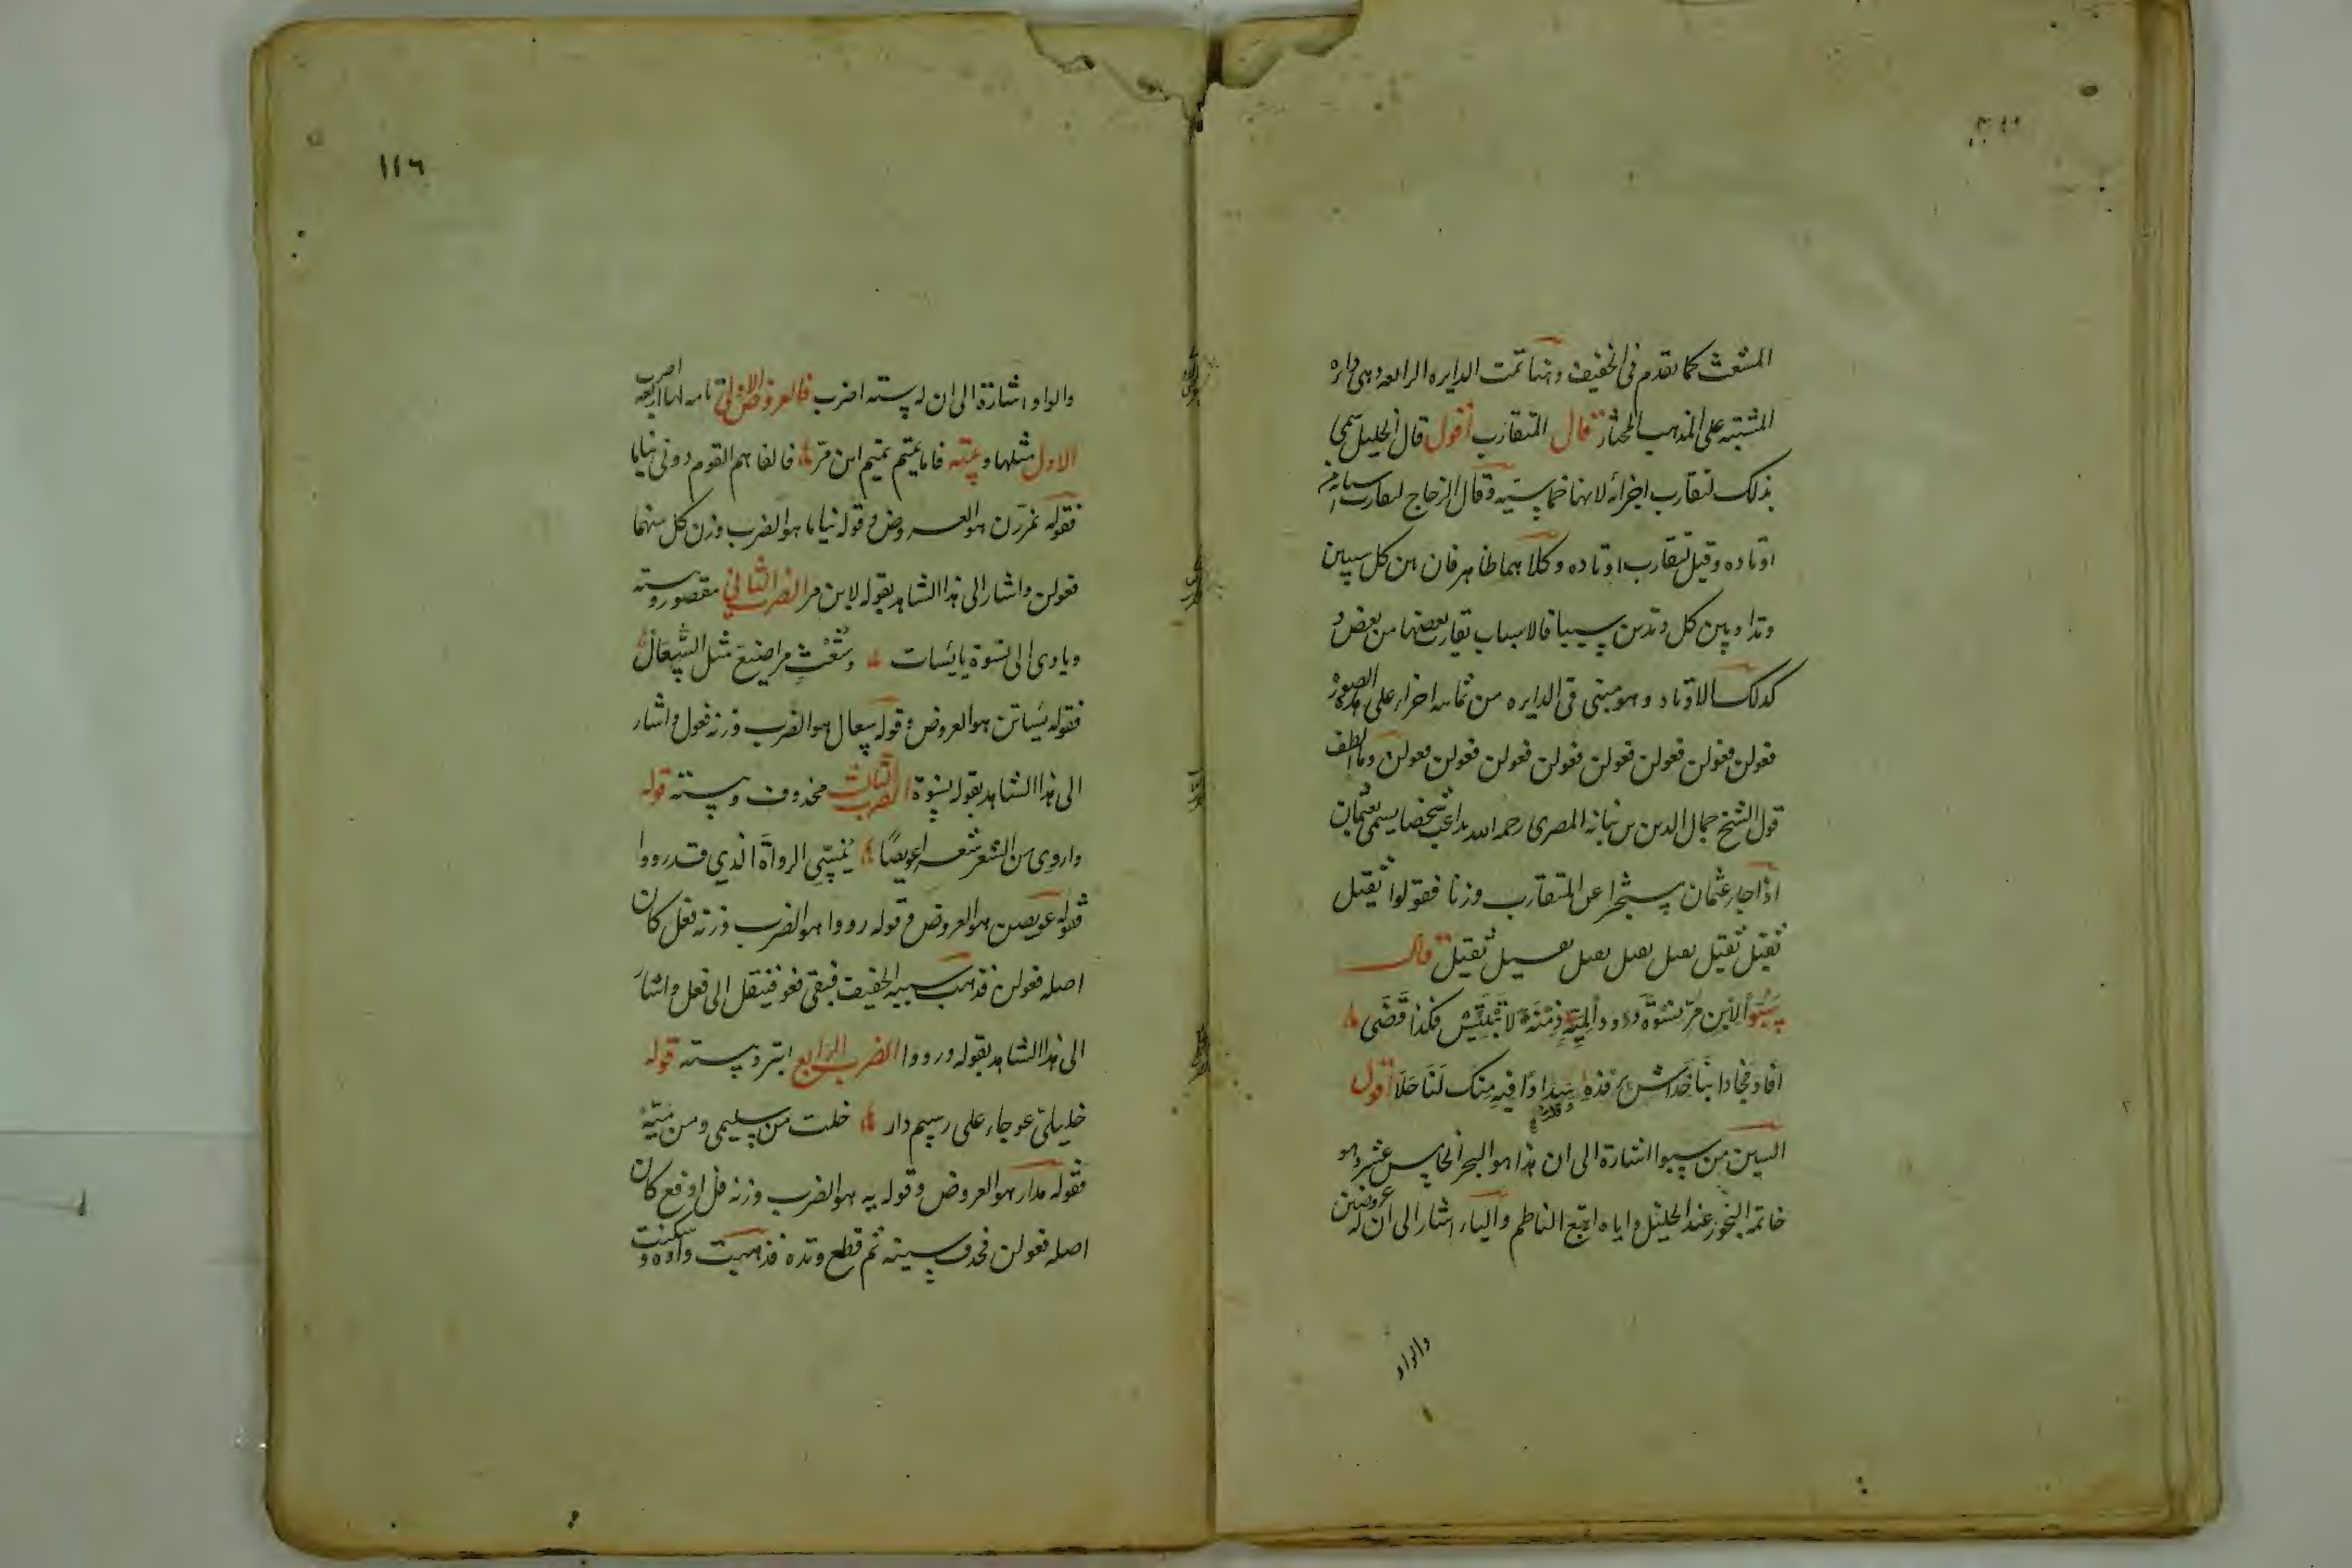 المشعث كما تقدم فى الخفيف وهنا تمت الدايره الرابعه وهى دايره
المشتبه على المذهب المختار قال المتقارب أقول قال الخليل سمى
بذلك لتقارب اجزائه لانها خماسيه وقال الزجاج لتقارب اسبابه من
اوتاده وقيل لتقارب اوتاده وكلاهما ظاهر فان من كل سببين
وتدا وبين كل وتدين سببا فالاسباب تقارب بعضها من بعض و
كذلك الاوتاد وهو مبنى فى الدايره من ثمانيه اجزاء على هذه الصوره
فعولن فعولن فعولن فعولن فعولن فعولن فعولن فعولن وما الطف
قول الشيخ جمال الدين بن نباته المصرى رحمه الله يداعب شخصا يسمى بعثمان
اذا جاء عثمان مستخبرا عن المتقارب وزنا فقولوا ثقيل
ثقيل ثقيل ثقيل ثقيل ثقيل ثقيل ثقيل قال
سبوا لابن مر نسوة ورووا لمية دمنة لا تبتئس فكذا قضى
افاد فجادا بنا خداش برفده وقلت سدادا فيه منك لنا حلا أقول
السين من سبوا اشارة الى ان هذا هو البحر الخامس عشر وهو
خاتمة البحور عند الخليل واياه اتبع الناظم والباء اشار الى ان له عروضين
والواو
١١٦
والواو اشارة الى ان له ستة اضرب فالعروض الاولى تامه لها اربعه اضرب
الاول مثلها وبيته فاما تميم تميم ابن مر فالفاهم القوم روبى نياما
فقوله نمررن هو العروض وقوله نياما هو الضرب وزن كل منهما
فعولن واشار الى هذا الشاهد بقوله لابن مر الضرب الثانى مقصور وبيته
وياوى الى نسوة يائسات وشعث مراضيع مثل السعال
فقوله ئساتن هو العروض وقوله سعال هو الضرب وزنه فعول واشار
الى هذا الشاهد بقوله نسوة الضرب الثالث محذوف وبيته قوله
واروى من الشعر شعرا عويصا ينسى الرواة الذي قد رووا
فقوله عويصن هو العروض وقوله رووا هو الضرب وزنه فعل كان
اصله فعولن فذهب سببه الخفيف فبقى فعو فينقل الى فعل واشار
الى هذا الشاهد بقوله ورووا الضرب الرابع ابتر وبيته قوله
خليلى عوجاء على رسم دار خلت من سليمى ومن ميه
فقوله مدار هو العروض وقوله يه هو الضرب وزنه فل او فع كان
اصله فعولن فحذف سببه ثم قطع وتده فذهبت واوه وسكنت